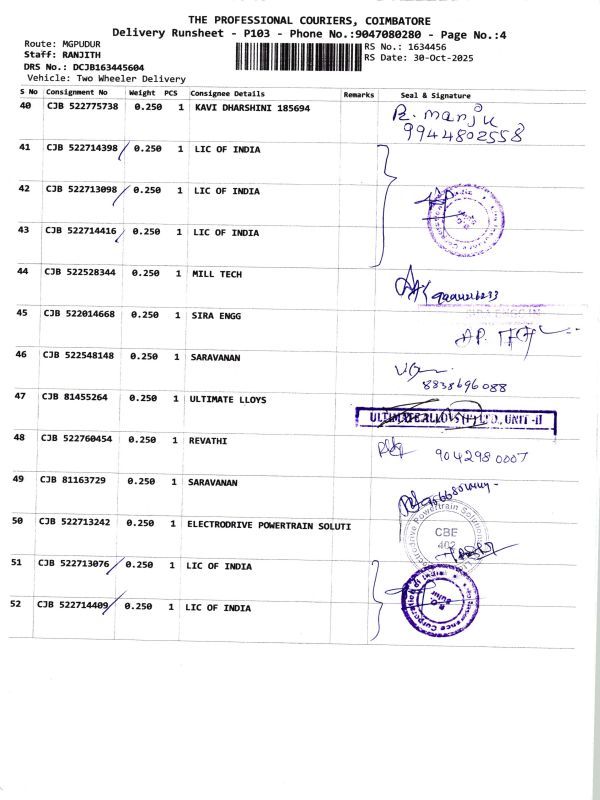 THE PROFESSIONAL COURIERS, COIMBATORE
Delivery Runsheet - P103 - Phone No.:9047080280 - Page No.:4
Route: MGPUDUR
Staff: RANJITH
DRS No.: DCJB163445604
Vehicle: Two Wheeler Delivery
RS No.: 1634456
RS Date: 30-Oct-2025
S No Consignment No Weight PCS Consignee Details Remarks Seal & Signature
40 CJB 522775738 0.250 1 KAVI DHARSHINI 185694
R. manju
9944802558
41 CJB 522714398 0.250 1 LIC OF INDIA
42 CJB 522713098 0.250 1 LIC OF INDIA
43 CJB 522714416 0.250 1 LIC OF INDIA
44 CJB 522528344 0.250 1 MILL TECH
45 CJB 522014668 0.250 1 SIRA ENGG
46 CJB 522548148 0.250 1 SARAVANAN
8838696088
47 CJB 81455264 0.250 1 ULTIMATE LLOYS
ULTIMATE ALLOYS (P) LTD., UNIT -II
48 CJB 522760454 0.250 1 REVATHI
9042980007
49 CJB 81163729 0.250 1 SARAVANAN
50 CJB 522713242 0.250 1 ELECTRODRIVE POWERTRAIN SOLUTI
Electrodrive Powertrain Solutions
CBE
402
51 CJB 522713076 0.250 1 LIC OF INDIA
52 CJB 522714409 0.250 1 LIC OF INDIA